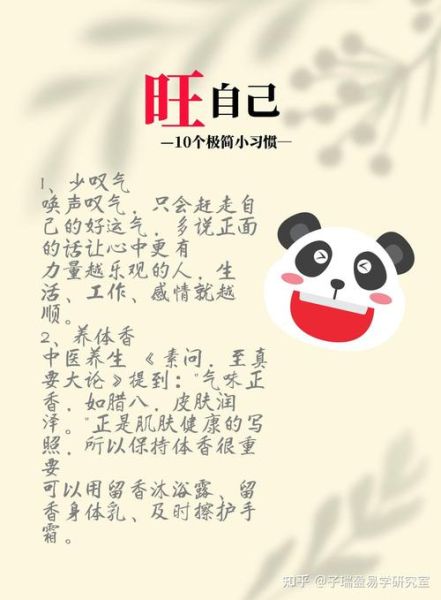 旺自己
—10个极简小习惯—
1、少叹气
唤声叹气，只会赶走自
己的好运气，多说正面
的话让心中更有
力量越乐观的人，生
活、工作、感情就越
顺。
2、养体香
中医养生 《素问，至真
要大论》提到："气味正
香，如腊八，皮肤润
泽。"正是肌肤健康的写
照，所以保持体香很重
要
可以用留香沐浴露、留
香身体乳、及时擦护手
霜。
知乎 @子瑞盈易学研究室